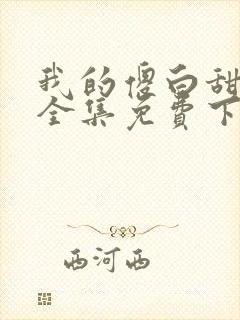 我的傻白甜
全集免费下
西河西